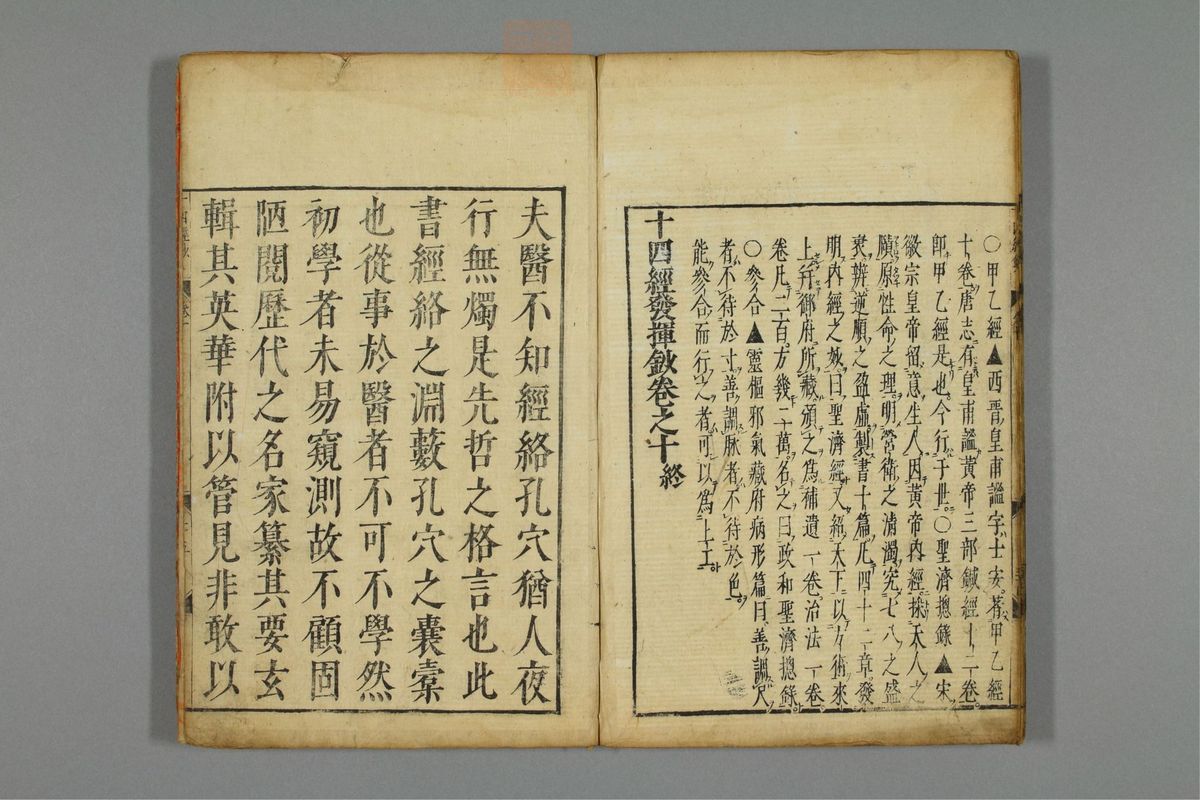 〇甲乙經▲西晋皇甫謐字士安著甲乙經
十卷唐志有皇甫謐黃帝三部鍼經十二卷
即甲乙經是也今行于世〇聖濟摠錄▲宋
徽宗皇帝留意生人因黃帝內經採天人之
賾原性命之理明營衛之清濁究七八之盛
衰辨逆順之盈虛製書十篇凡四十二章發
明內經之妙曰聖濟經又紹天下以方術來
上并御府所藏頒之爲補遺一卷治法一卷
卷凡二百方幾二萬名之曰政和聖濟摠錄
〇參合▲靈樞邪氣藏府病形篇曰善調尺
者不待於寸善調脉者不待於色
能參合而行之者可以爲上工
十四經發揮鈔卷之十終
夫醫不知經絡孔穴猶人夜
行無燭是先哲之格言也此
書經絡之淵藪孔穴之囊橐
也從事於醫者不可不學然
初學者未易窺測故不顧固
陋閱歷代之名家纂其要玄
輯其英華附以管見非敢以